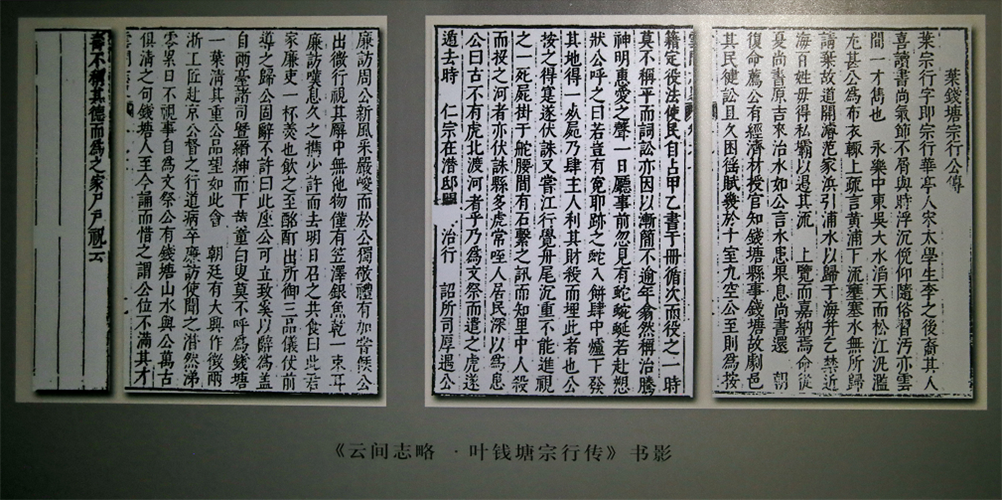 葉錢塘宗行公傳
葉宗行字即宗行華亭人宋太學生李之後裔其人
喜讀書尚氣節不屑與時浮沉俛仰隨俗習汚亦雲
間一才雋也　永樂中東吳大水滔天而松江洗濫
尤甚公為布衣輙上疏言黃浦下流壅塞水無所歸
請棄故道開濬范家浜引浦水以歸于海并乞禁近
海百姓毋得私壩以遏其流　上覽而嘉納焉命從
夏尚書原吉來治水如公言水患果息尚書還　朝
復命薦公有經濟材授官知錢塘縣事錢塘故劇邑
其民健訟且久困徭賦幾於十室九空公至則為按
籍定役法使民自占甲乙書于冊循次而役之一時
莫不稱平而詞訟亦因以漸簡不逾年翕然稱治騰
神明惠愛之聲一日廳事前忽見有蛇蜿蜒若赴愬
狀公呼之曰若豈有冤耶跡之蛇入餅肆中爐下發
其地得一㱾屍乃肆主人利其財殺而埋此者也公
按之得寔遂伏誅又嘗江行覺舟尾沉重不能進視
之一死屍掛于舵腰間有石繫之訊而知里中人殺
而投之河者亦伏誅縣多虎常咥人居民深以為患
公曰古不有虎北渡河者乎乃為文祭而遣之虎遂
遁去時　仁宗在潛邸　治行　詔所司厚遇公
廉訪周公新風采嚴峻而於公獨敬禮有加嘗候公
出微行視其廨中無他物僅有笠澤銀魚乾一束耳
廉訪嘆息久之攜少許而去明日召之共食曰此君
家廉吏一杯羮也飲之至酩酊出所御三品儀伏前
導之歸公固辭不許曰此座公可立致奚以辭為蓋
自兩臺諸司曁縉紳而下黃童白叟莫不呼為錢塘
一葉清其重公品望如此會　朝廷有大興作徵兩
浙工匠赴京公督之行道病卒廉訪使聞之潸然涕
零累日不視事自為文祭公有錢塘山水與公萬古
俱清之句錢塘人至今誦而惜之謂公位不滿其才
壽不稱其德而為之家尸戶祝云
《云间志略 · 叶钱塘宗行传》书影